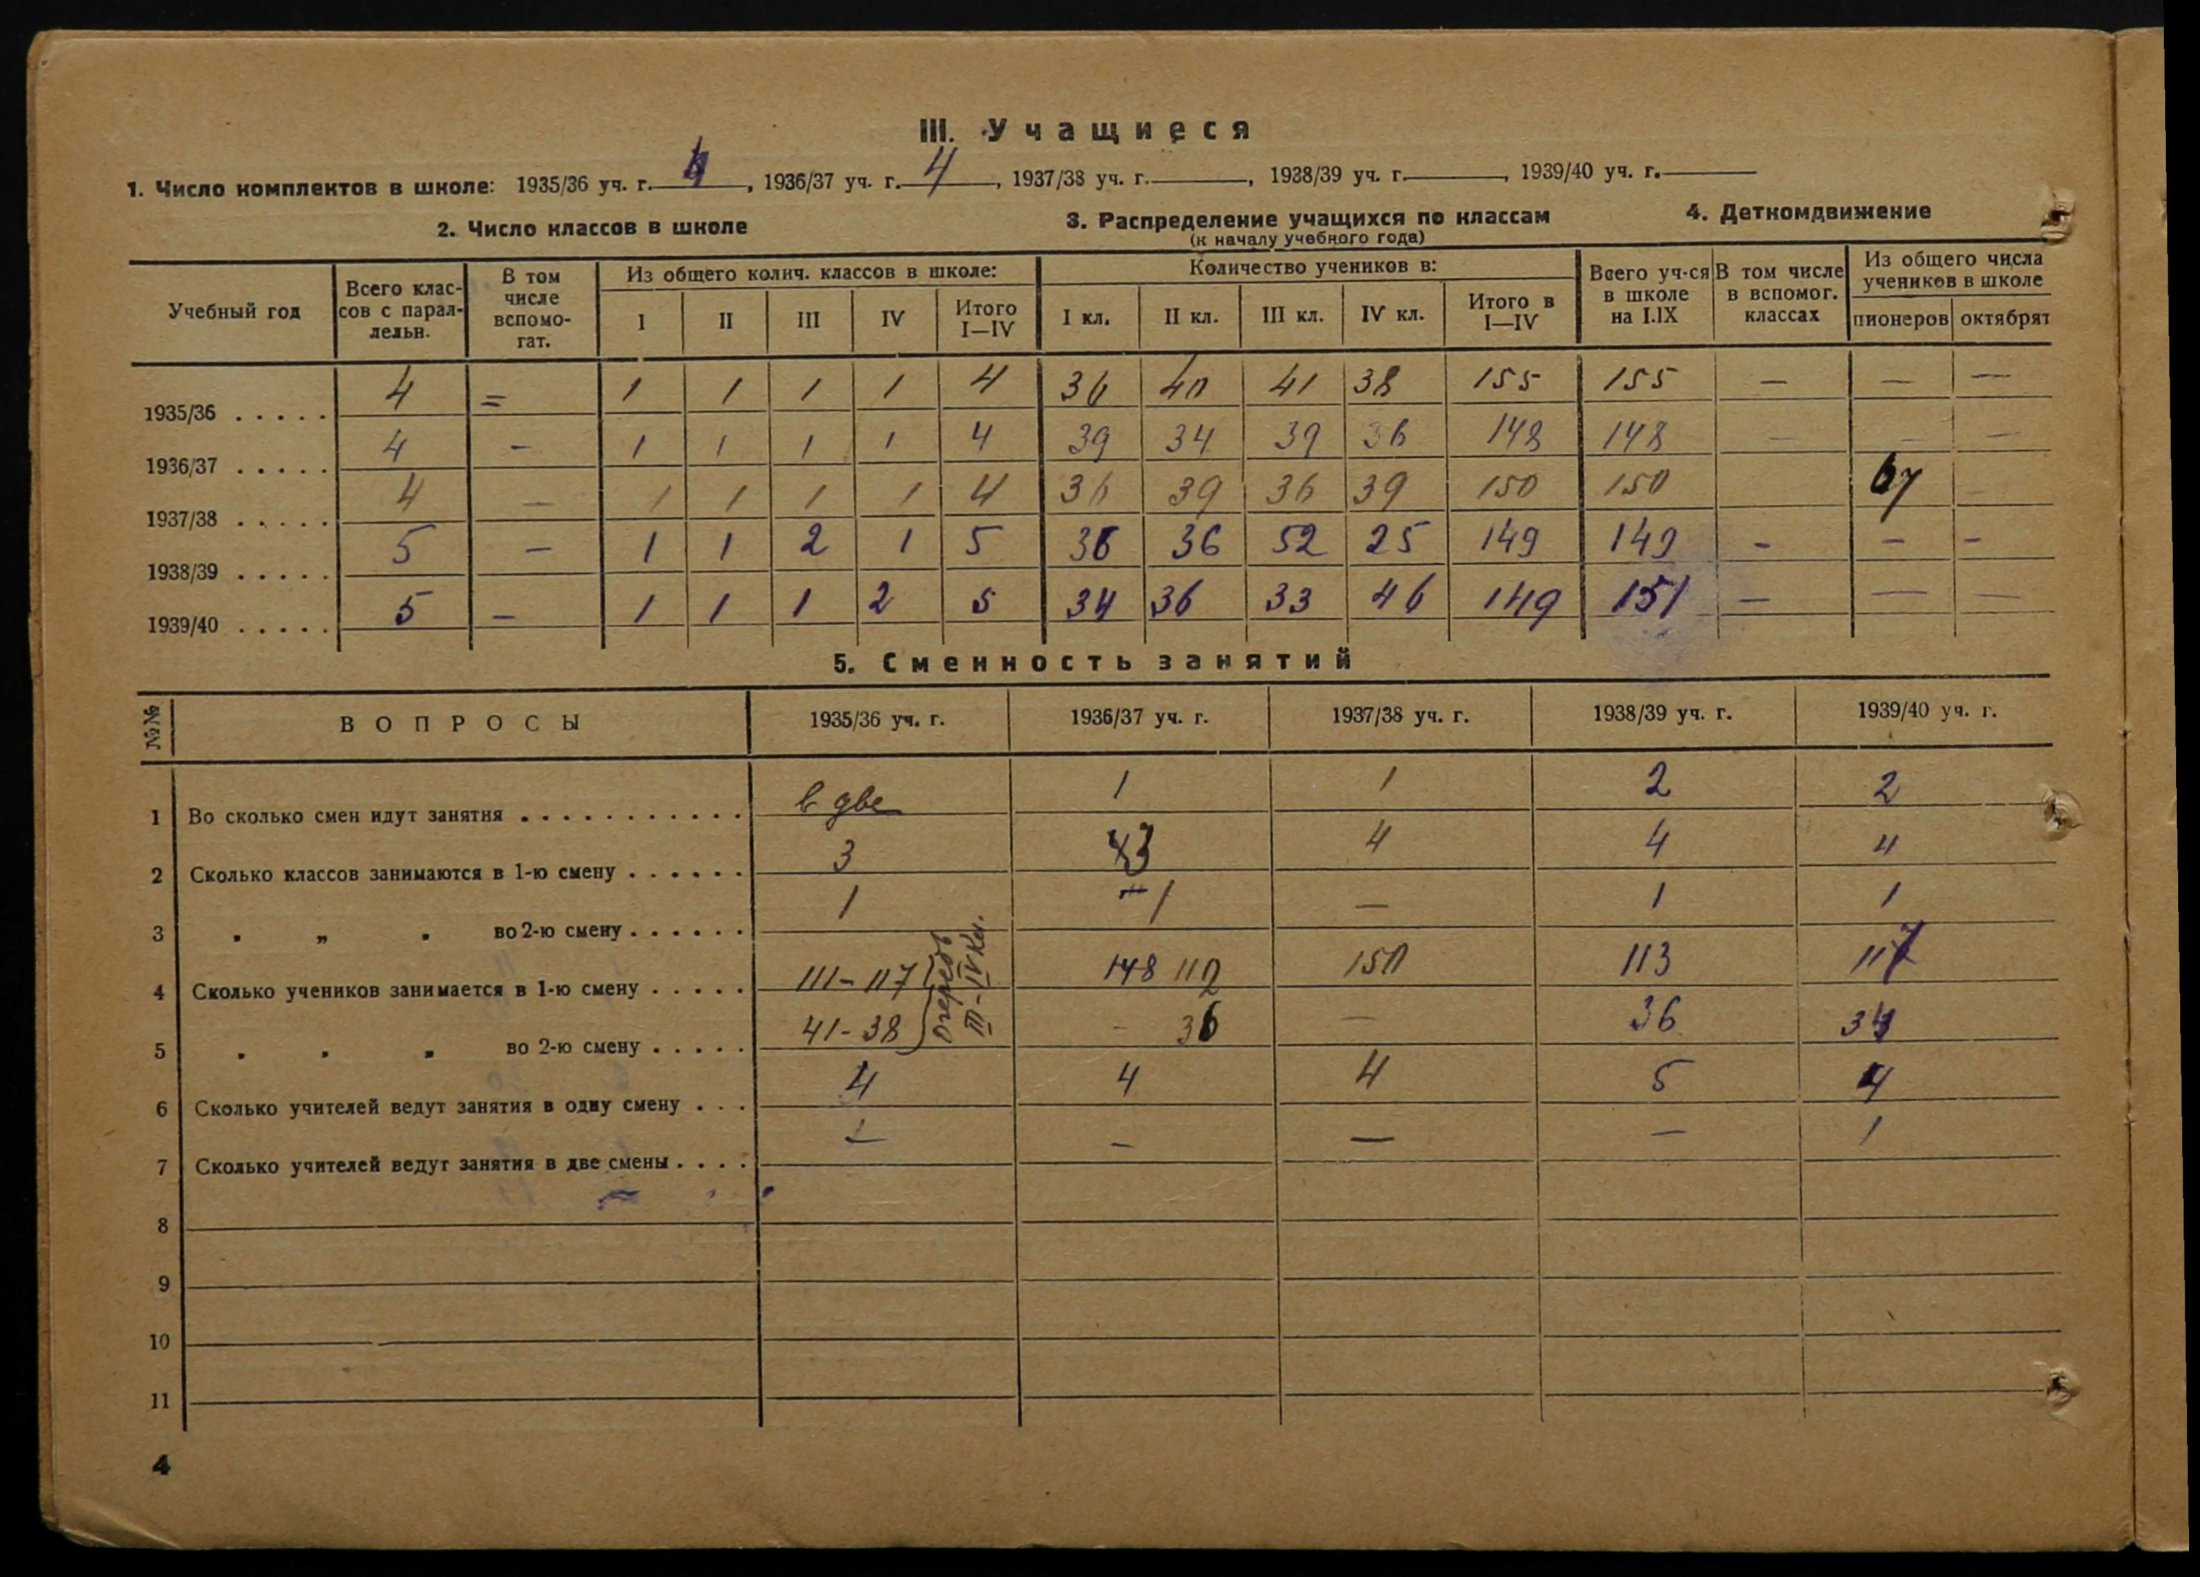 III. Учащиеся
1. Число комплектов в школе: 1935/36 уч. г. 4, 1936/37 уч. г. 4, 1937/38 уч. г. , 1938/39 уч. г. , 1939/40 уч. г.
2. Число классов в школе 3. Распределение учащихся по классам 4. Деткомдвижение
(к началу учебного года)
Учебный год Всего классов с параллельн. В том числе вспомогат. Из общего колич. классов в школе: Количество учеников в: Всего уч-ся в школе на I.IX В том числе в вспомог. классах Из общего числа учеников в школе
I II III IV Итого I—IV I кл. II кл. III кл. IV кл. Итого в I—IV пионеров октябрят
1935/36 . . . . . 4 = 1 1 1 1 4 36 40 41 38 155 155 — — —
1936/37 . . . . . 4 - 1 1 1 1 4 39 34 39 36 148 148 — — —
1937/38 . . . . . 4 — 1 1 1 1 4 36 39 36 39 150 150 67 —
1938/39 . . . . . 5 — 1 1 2 1 5 36 36 52 25 149 149 - — -
1939/40 . . . . . 5 — 1 1 1 2 5 34 36 33 46 149 151 — — —
5. Сменность занятий
№№ ВОПРОСЫ 1935/36 уч. г. 1936/37 уч. г. 1937/38 уч. г. 1938/39 уч. г. 1939/40 уч. г.
1 Во сколько смен идут занятия . . . . . . . . . . . в две 1 1 2 2
2 Сколько классов занимаются в 1-ю смену . . . . . . 3 3 4 4 4
3 „ „ „ во 2-ю смену . . . . . . 1 1 — 1 1
4 Сколько учеников занимается в 1-ю смену . . . . . 111-117 148 112 150 113 117
5 „ „ „ во 2-ю смену . . . . . 41-38 - 36 — 36 34
III-IV кл.
6 Сколько учителей ведут занятия в одну смену . . . 4 4 4 5 4
7 Сколько учителей ведут занятия в две смены . . . . — — — — 1
8
9
10
11
4